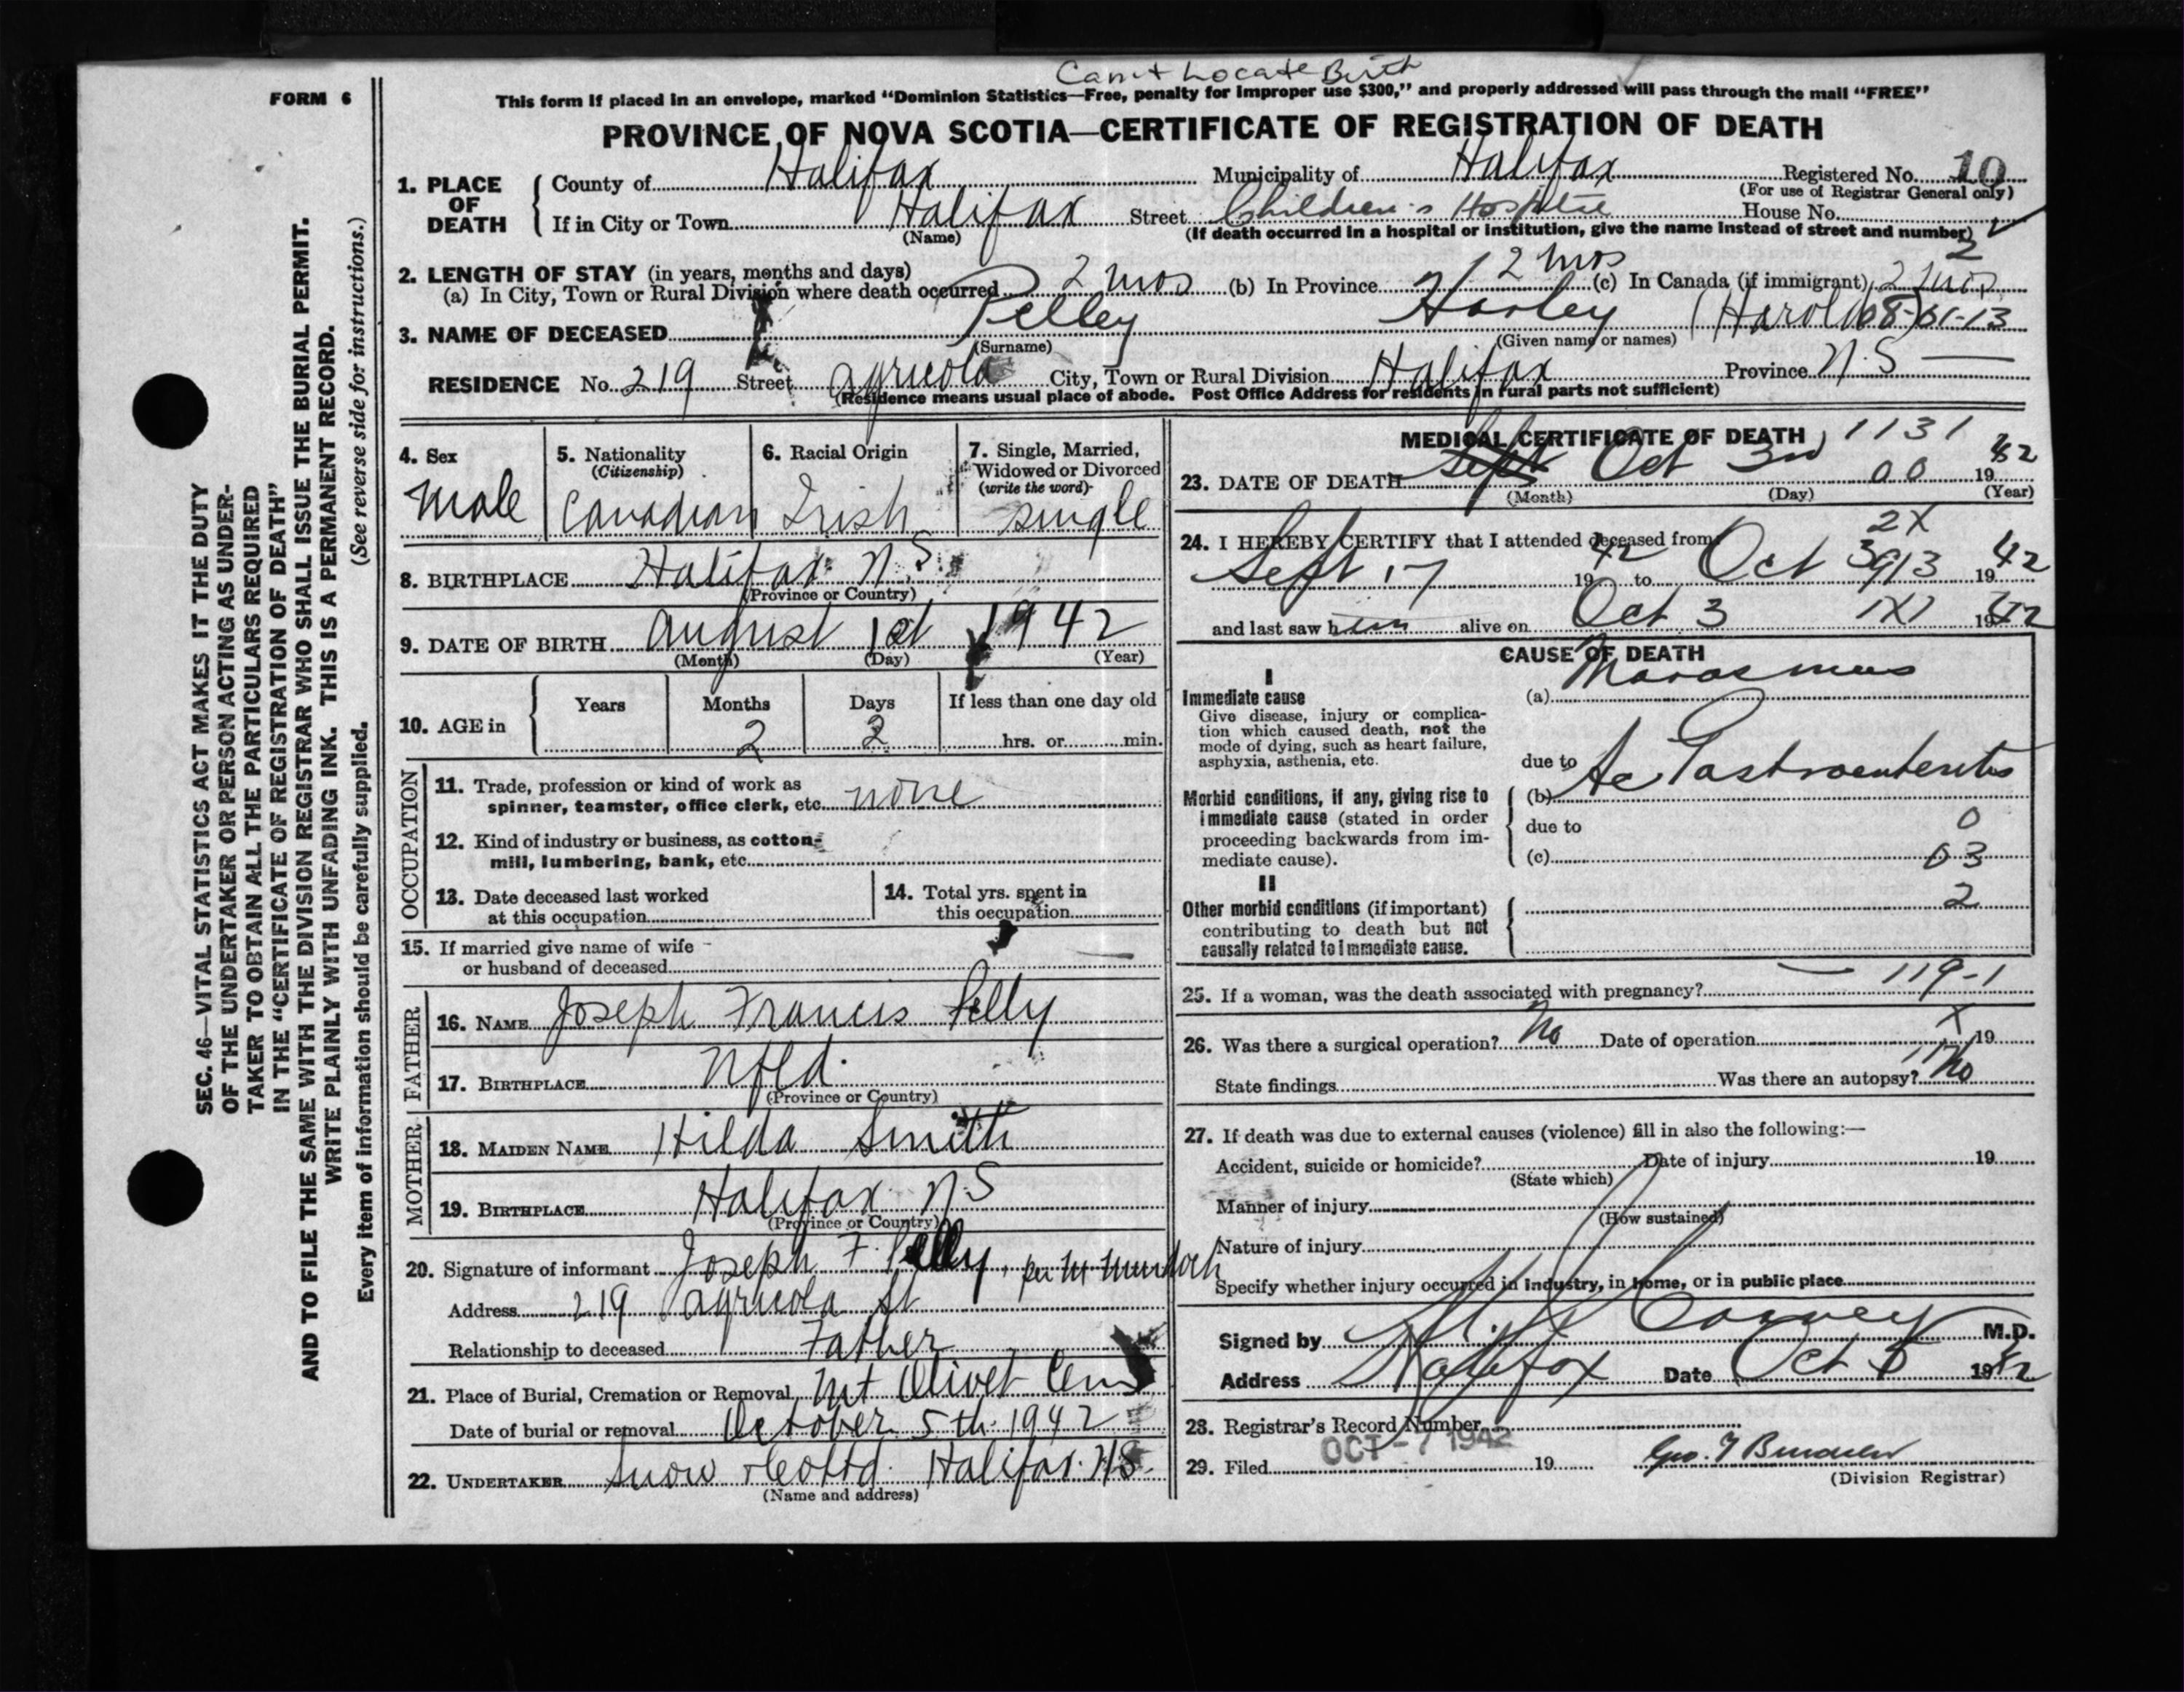 Can't Locate Birth
FORM 6
This form if placed in an envelope, marked "Dominion Statistics—Free, penalty for improper use $300," and properly addressed will pass through the mail "FREE"
PROVINCE OF NOVA SCOTIA—CERTIFICATE OF REGISTRATION OF DEATH
1. PLACE OF DEATH County of Halifax Municipality of Halifax Registered No. 10
(For use of Registrar General only)
If in City or Town Halifax Street Children's Hospital House No.
(Name) (If death occurred in a hospital or institution, give the name instead of street and number)
2. LENGTH OF STAY (in years, months and days)
(a) In City, Town or Rural Division where death occurred 2 mos (b) In Province 2 mos (c) In Canada (if immigrant) 2 mos
3. NAME OF DECEASED Pelley Harley (Harold) 08-01-13
(Surname) (Given name or names)
RESIDENCE No. 219 Street Agricola City, Town or Rural Division Halifax Province N.S
(Residence means usual place of abode. Post Office Address for residents in rural parts not sufficient)
4. Sex Male
5. Nationality (Citizenship) Canadian
6. Racial Origin Irish
7. Single, Married, Widowed or Divorced (write the word) single
8. BIRTHPLACE Halifax N.S
(Province or Country)
9. DATE OF BIRTH August 1st 1942
(Month) (Day) (Year)
10. AGE in Years Months Days If less than one day old
2 2 hrs. or min.
OCCUPATION
11. Trade, profession or kind of work as
spinner, teamster, office clerk, etc. none
12. Kind of industry or business, as cotton-
mill, lumbering, bank, etc.
13. Date deceased last worked
at this occupation
14. Total yrs. spent in
this occupation
15. If married give name of wife
or husband of deceased
FATHER
16. NAME Joseph Francis Pelly
17. BIRTHPLACE Nfld.
(Province or Country)
MOTHER
18. MAIDEN NAME Hilda Smith
19. BIRTHPLACE Halifax N S
(Province or Country)
20. Signature of informant Joseph F. Pelly, per M Murdoch
Address 219 Agricola St
Relationship to deceased Father
21. Place of Burial, Cremation or Removal Mt Olivet Cem
Date of burial or removal October 5th 1942
22. UNDERTAKER Snow & Co Ltd. Halifax. NS.
(Name and address)
MEDICAL CERTIFICATE OF DEATH 1131
23. DATE OF DEATH Sept Oct 3rd 00 1942
(Month) (Day) (Year)
24. I HEREBY CERTIFY that I attended deceased from 2X
Sept 17 1942 to Oct 3 913 1942
and last saw him alive on Oct 3 1X1 1942
CAUSE OF DEATH
I
Immediate cause
Give disease, injury or complica-
tion which caused death, not the
mode of dying, such as heart failure,
asphyxia, asthenia, etc.
(a) Marasmus
due to
Morbid conditions, if any, giving rise to
immediate cause (stated in order
proceeding backwards from im-
mediate cause).
(b) Ac Gastroenteritis
due to 0
(c) 03
II
Other morbid conditions (if important)
contributing to death but not
causally related to immediate cause.
2
25. If a woman, was the death associated with pregnancy? — 119-1
26. Was there a surgical operation? No Date of operation X 19
State findings Was there an autopsy? No
27. If death was due to external causes (violence) fill in also the following:—
Accident, suicide or homicide? Date of injury 19
(State which)
Manner of injury
(How sustained)
Nature of injury
Specify whether injury occurred in industry, in home, or in public place
Signed by M.D.
Address Halifax Date Oct 5 1942
28. Registrar's Record Number
29. Filed OCT -7 1942 19
(Division Registrar)
SEC. 46—VITAL STATISTICS ACT MAKES IT THE DUTY
OF THE UNDERTAKER OR PERSON ACTING AS UNDER-
TAKER TO OBTAIN ALL THE PARTICULARS REQUIRED
IN THE "CERTIFICATE OF REGISTRATION OF DEATH"
AND TO FILE THE SAME WITH THE DIVISION REGISTRAR WHO SHALL ISSUE THE BURIAL PERMIT.
WRITE PLAINLY WITH UNFADING INK. THIS IS A PERMANENT RECORD.
Every item of information should be carefully supplied. (See reverse side for instructions.)